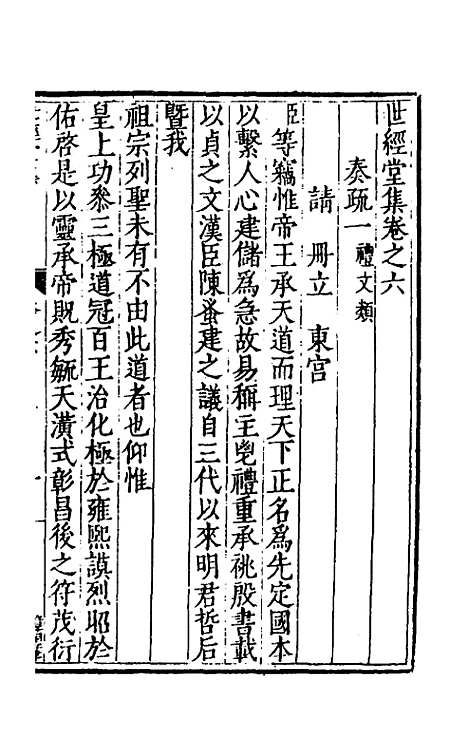 世經堂集卷之六
奏疏一禮文類
請 冊立 東宫
臣等竊惟帝王承天道而理天下正名爲先定國本
以繫人心建儲爲急故易稱主鬯禮重承祧殷書載
以貞之文漢臣陳蚤建之議自三代以來明君哲后
暨我
祖宗列聖未有不由此道者也仰惟
皇上功叅三極道冠百王治化極於雍熙謨烈昭於
佑啓是以靈承帝旣秀毓天潢式彰昌後之符茂衍